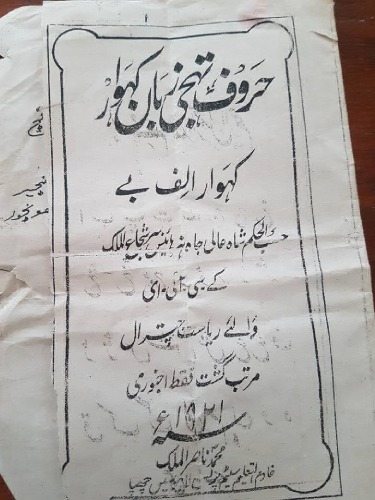 ۱
حروف تہجی زبان کہوار
کہوار الف بے
حسب الحکم شاہ عالی جاہ ہز ہائینس سر شجاع الملک
کے سی آئی ای
والئے ریاست چترال
مرتب گشت فقط ۱ جنوری
سنہ ۱۹۲۱ ع
محمد ناصر الملک
خادم التعلیم پریس چھپا